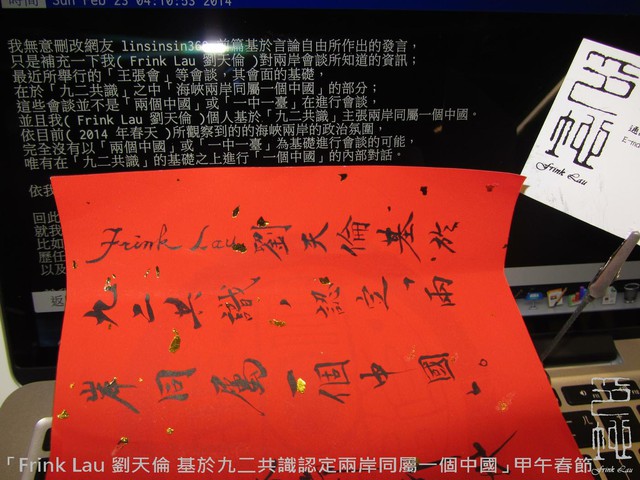 時間 Sun Feb 23 04:10:53 2014
我無意刪改網友 linsinsin360 前篇基於言論自由所作出的發言，
只是補充一下我( Frink Lau 劉天倫 )對兩岸會談所知道的資訊；
最近所舉行的「王張會」等會談，其會面的基礎，
在於「九二共識」之中「海峽兩岸同屬一個中國」的部分；
這些會談並不是「兩個中國」或「一中一臺」在進行會談，
並且我( Frink Lau 劉天倫 )個人基於「九二共識」主張兩岸同屬一個中國。
依目前( 2014 年春天 )所觀察到的的海峽兩岸的政治氛圍，
完全沒有以「兩個中國」或「一中一臺」為基礎進行會談的可能，
唯有在「九二共識」的基礎之上進行「一個中國」的內部對話。
依我
回此
就我
比如
歷任
以及
返
Frink Lau
E-ma
Frink Lau 劉天倫基於
九二共識，認定，兩
岸同屬一個中國。
「Frink Lau 劉天倫 基於九二共識認定兩岸同屬一個中國」甲午春節
Frink Lau